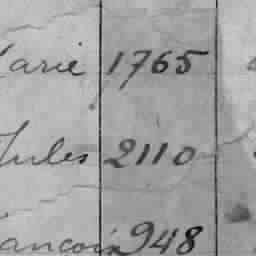 Marie 1765
Jules 2110
François 948